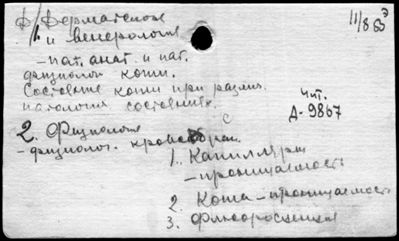 11/8 53
Дерматология
и венерология
– пат. анат. и пат.
физиолог. кожи.
Состояние кожи при разл.
патолог. состояниях.
Чит.
Д-9867
2. Физиология
– физиолог. кровообращ.
1. Капилляры
– проницаемость
2. Кожа – проницаемость
3. Флюоресценция